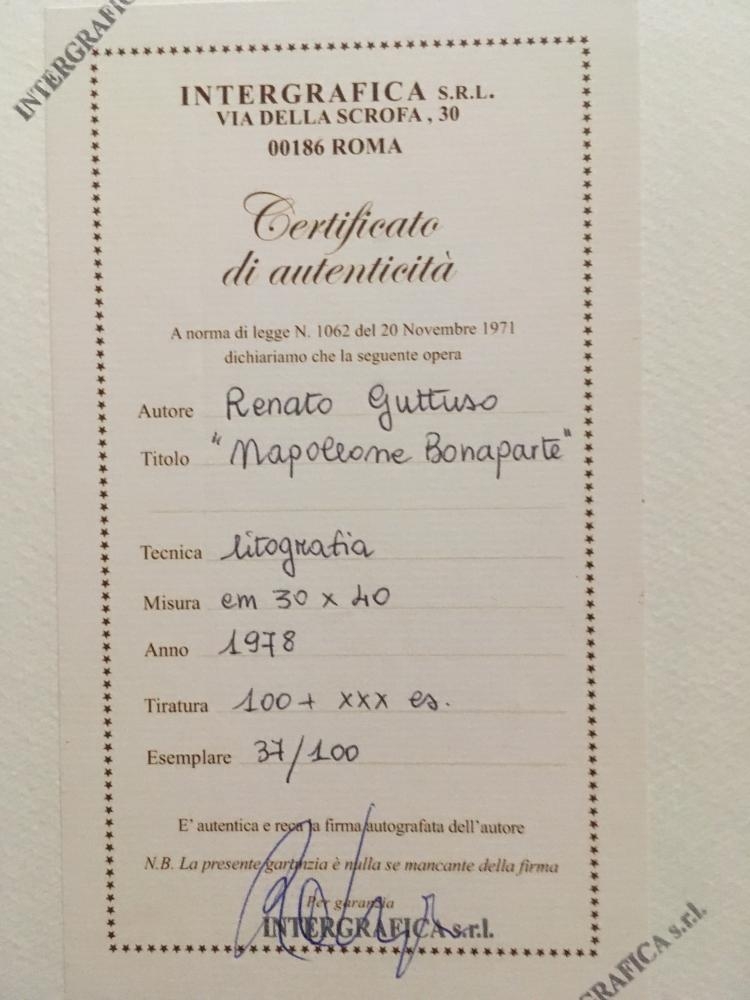 INTERGRAFICA
INTERGRAFICA S.R.L.
VIA DELLA SCROFA, 30
00186 ROMA
Certificato
di autenticità
A norma di legge N. 1062 del 20 Novembre 1971
dichiariamo che la seguente opera
Autore Renato Guttuso
Titolo "Napoleone Bonaparte"
Tecnica litografia
Misura cm 30 x 40
Anno 1978
Tiratura 100+ XXX es.
Esemplare 37/100
E' autentica e reca la firma autografata dell'autore
N.B. La presente garanzia è nulla se mancante della firma
Per garanzia
INTERGRAFICA s.r.l.
RAFICA s.r.l.